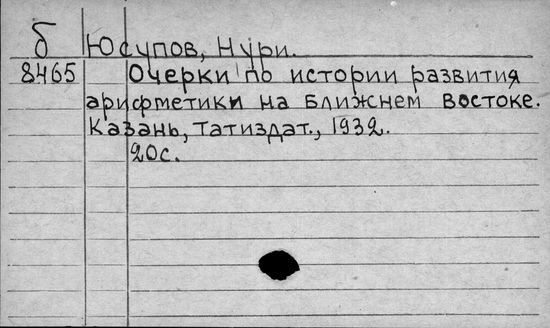 б Юсупов, Нури.
8465 Очерки по истории развития
арифметики на ближнем востоке.
Казань, Татиздат., 1932.
20с.